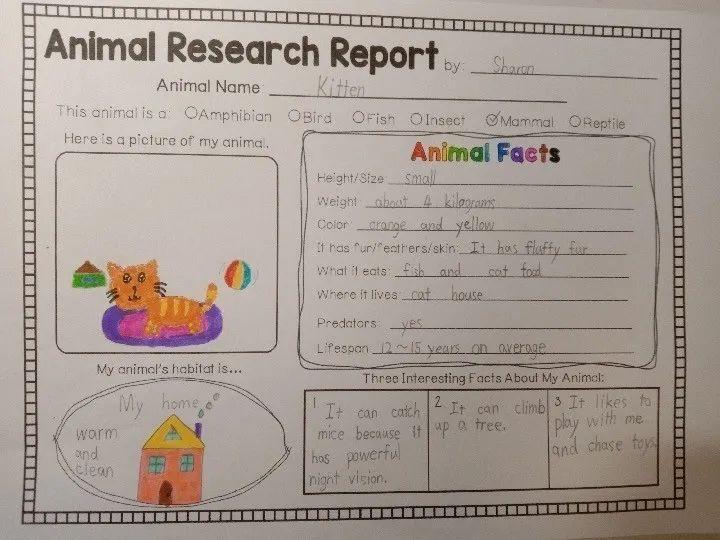 Animal Research Report by: Sharon
Animal Name: Kitten
This animal is a: Amphibian Bird Fish Insect Mammal Reptile
Here is a picture of my animal.
Animal Facts
Height/Size: small
Weight: about 4 kilograms
Color: orange and yellow
It has fur/feathers/skin: It has fluffy fur
What it eats: fish and cat food
Where it lives: cat house
Predators: yes
Lifespan: 12~15 years on average
My animal's habitat is...
My home
warm
and
clean
Three Interesting Facts About My Animal:
1. It can catch
mice because it
has powerful
night vision.
2. It can climb
up a tree.
3. It likes to
play with me
and chase toys.